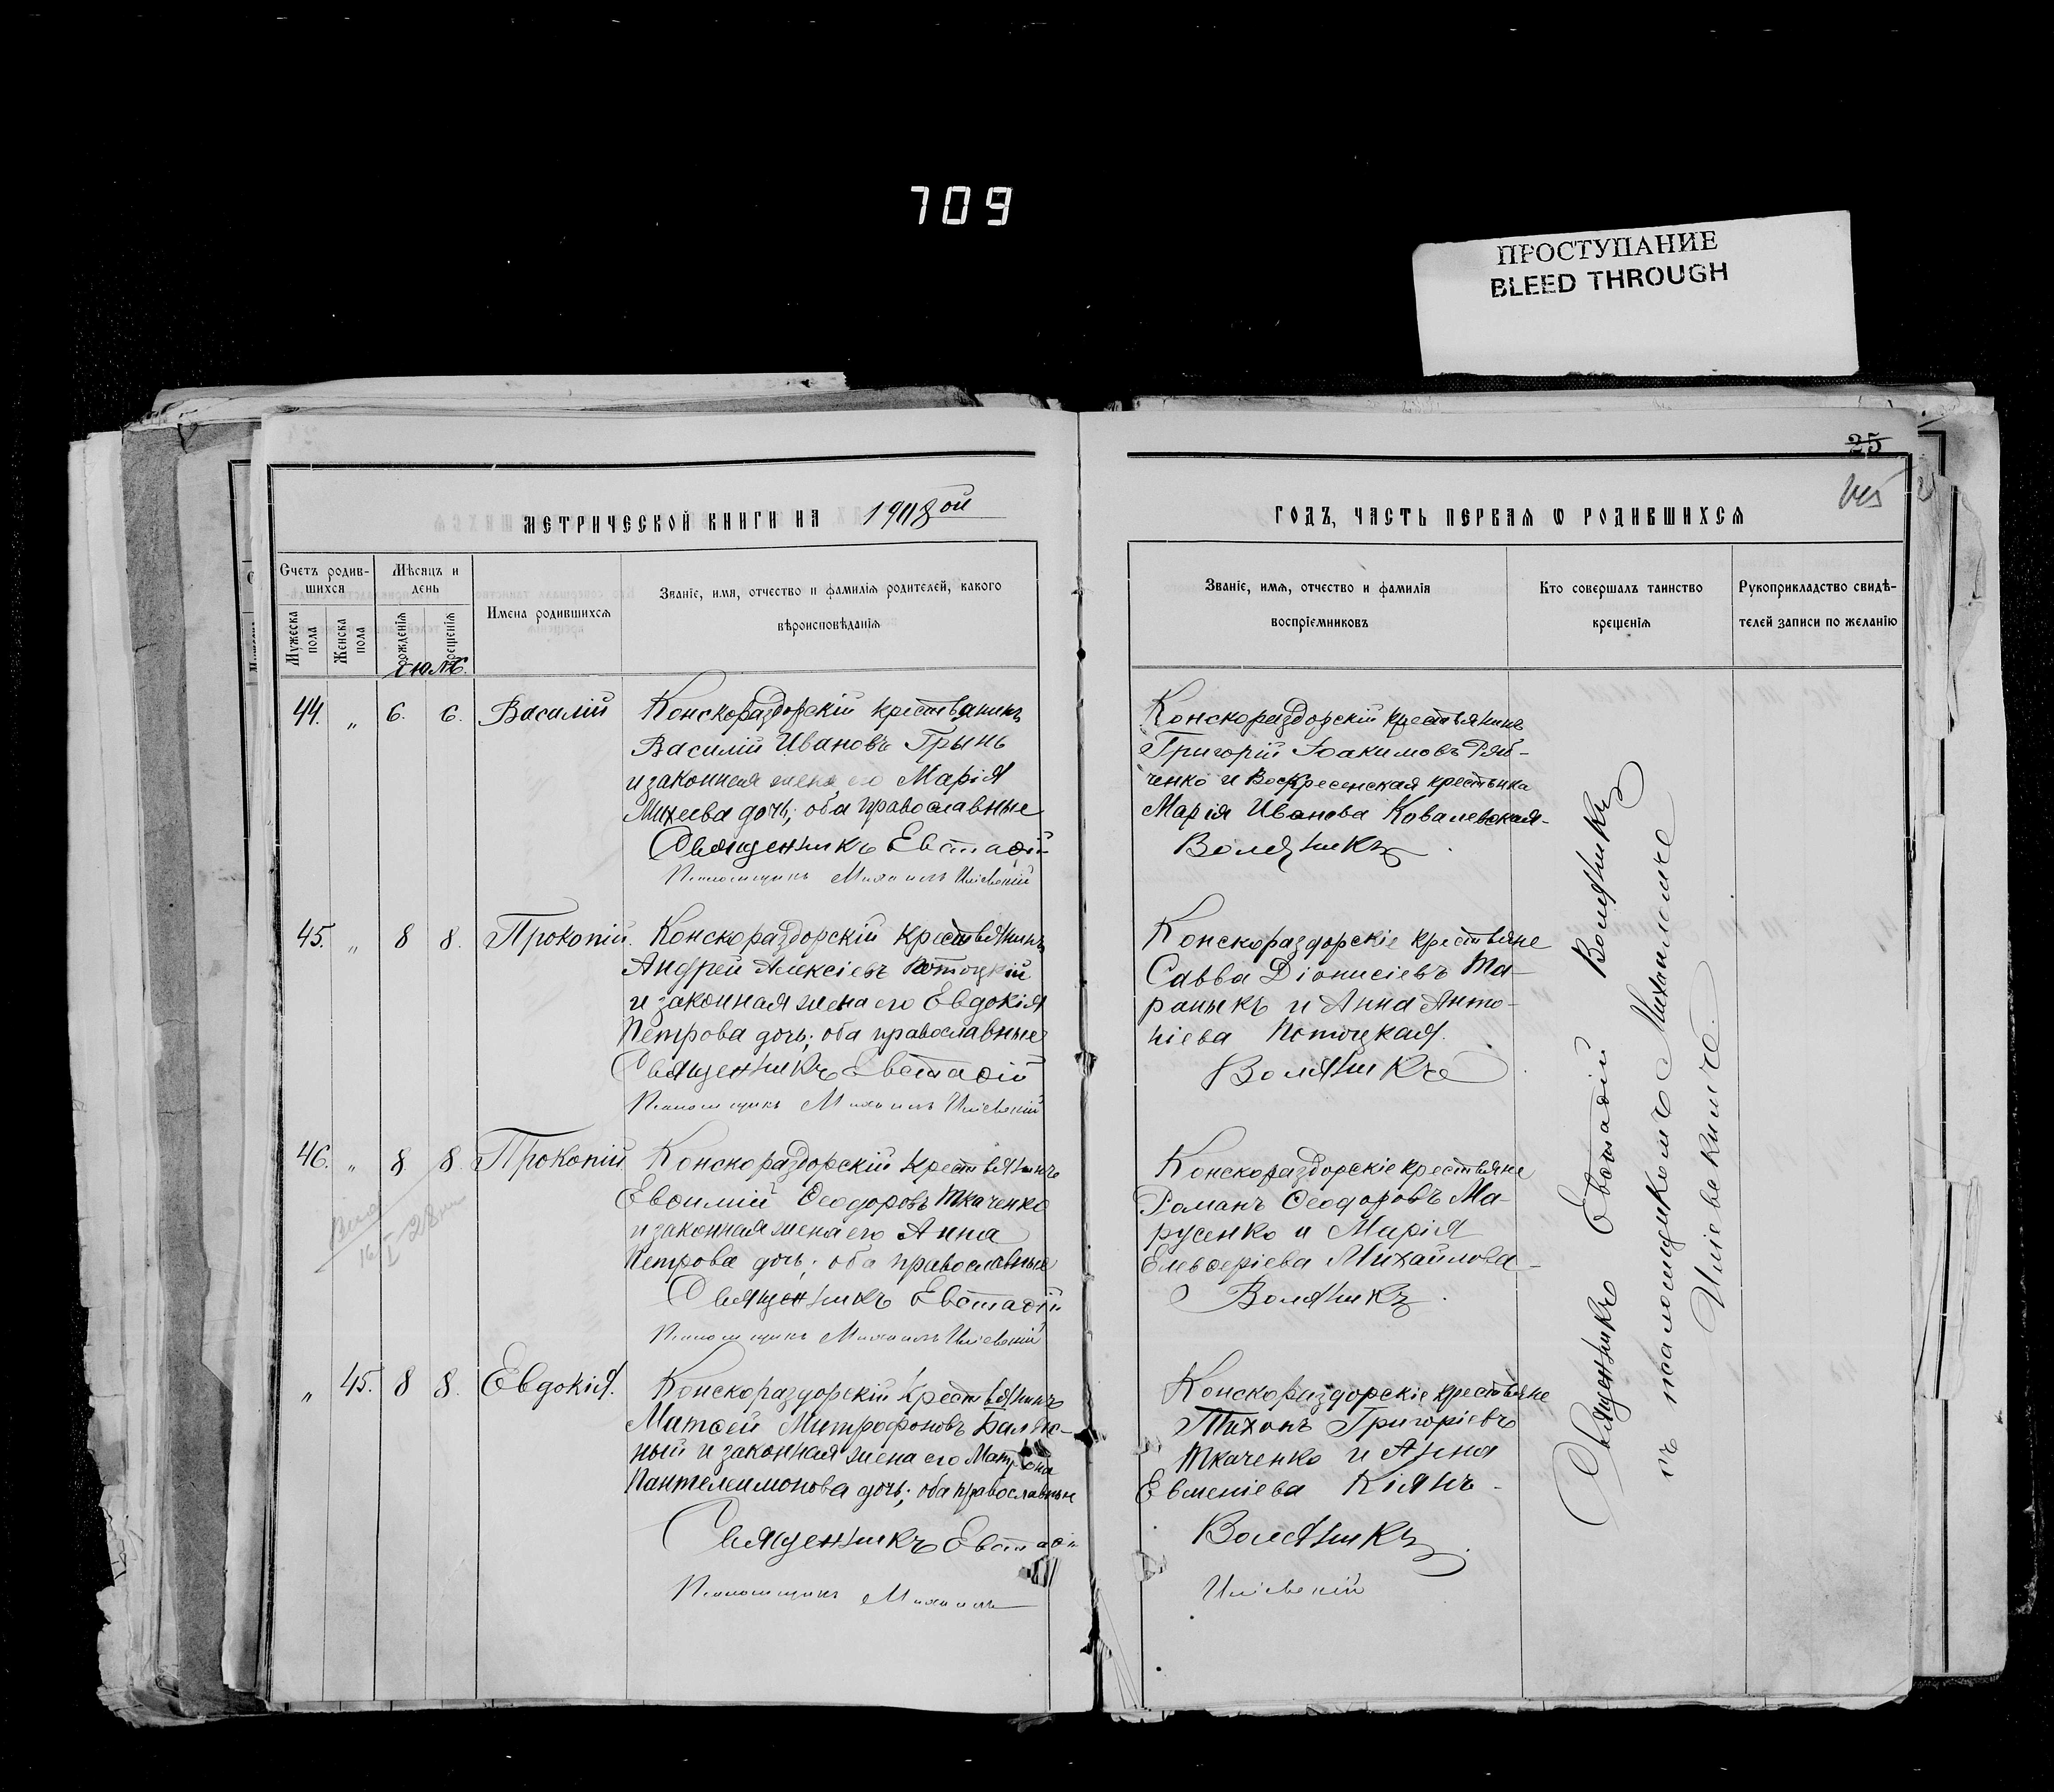 709
ПРОСТУПАНИЕ
BLEED THROUGH
25
МЕТРИЧЕСКОЙ КНИГИ НА 1908ой
ГОДЪ, ЧАСТЬ ПЕРВАЯ Ѡ РОДИВШИХСЯ
Счетъ родившихся
Мужеска пола
Женска пола
Мѣсяцъ и день
рожденія
крещенія
Имена родившихся
Званіе, имя, отчество и фамилія родителей, какого
вѣроисповѣданія
Званіе, имя, отчество и фамилія
воспріемниковъ
Кто совершалъ таинство
крещенія
Рукоприкладство свидѣ-
телей записи по желанію
Іюль.
44. „ 6. 6. Василій
Конскораздорскій крестьянинъ
Василій Ивановъ Грынь
и законная жена его Марія
Михеева дочь; оба православные
Священникъ Евстаѳій
Псаломщикъ Михаилъ Илієвскій
Конскораздорскій крестьянинъ
Григорій Іоакимовъ Ряб-
ченко и Воскресенская крестьянка
Марія Иванова Ковалевская
Воляникъ
45. „ 8 8. Прокопій.
Конскораздорскій крестьянинъ
Андрей Алексіевъ Потоцкій
и законная жена его Евдокія
Петрова дочь; оба православные
Священникъ Евстаѳій
Псаломщикъ Михаилъ Илієвскій
Конскораздорскіе крестьяне
Савва Діонисіевъ Та-
раныкъ и Анна Анто-
ніева Потоцкая.
Воляникъ
46. „ 8 8 Прокопій
Конскораздорскій крестьянинъ
Евѳимій Ѳеодоровъ Ткаченко
и законная жена его Анна
Петрова дочь; оба православные
Священникъ Евстаѳій
Псаломщикъ Михаилъ Илієвскій
Конскораздорскіе крестьяне
Романъ Ѳеодоровъ Ма-
русенко и Марія
Елевѳеріева Михайлова
Воляникъ
„ 45. 8 8. Евдокія.
Конскораздорскій крестьянинъ
Матѳей Митрофановъ
и законная жена его Матрона
Пантелеимонова дочь; оба православные
Священникъ Евстаѳій
Псаломщикъ Михаилъ
Конскораздорскіе крестьяне
Тихонъ Григоріевъ
Ткаченко и Анна
Евменіева Кіянъ
Воляникъ
Илієвскій
Священникъ Евстаѳій Воляникъ
съ псаломщикомъ Михаиломъ
Илієвскимъ.